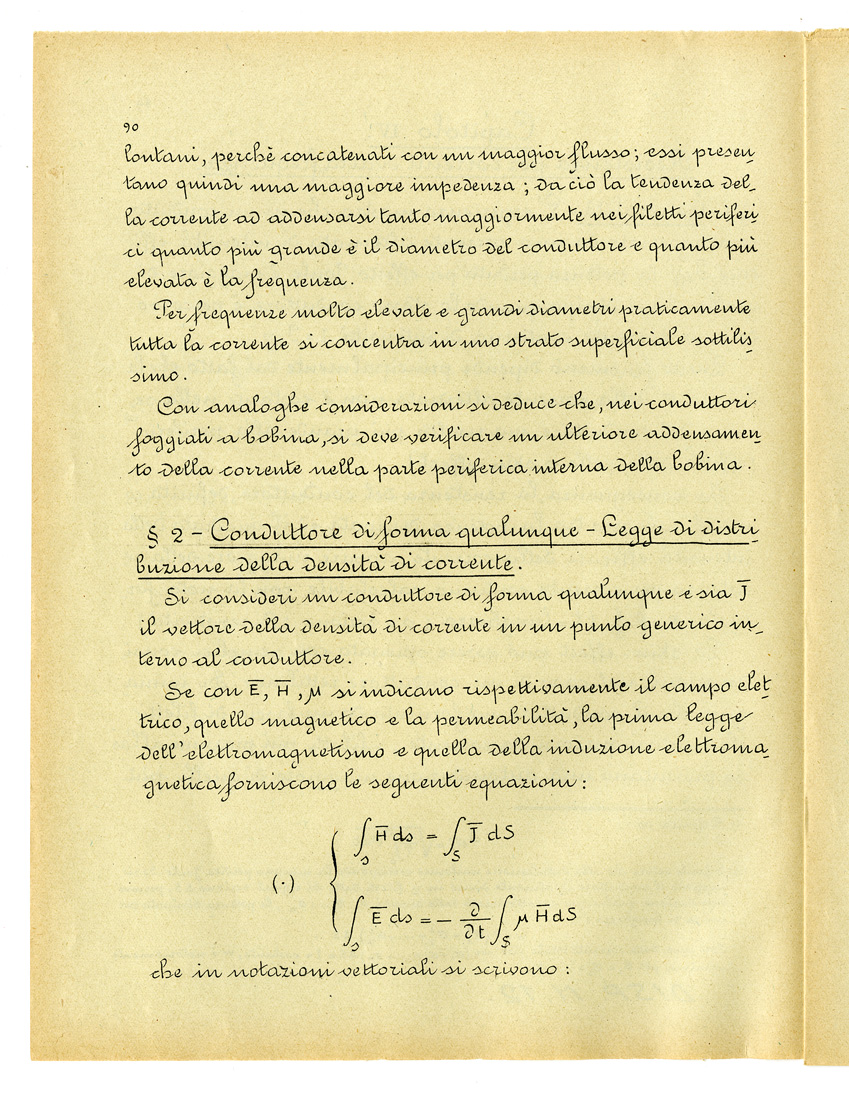 90
lontani, perchè concatenati con un maggior flusso; essi presen_
tano quindi una maggiore impedenza; da ciò la tendenza del_
la corrente ad addensarsi tanto maggiormente nei filetti periferi_
ci quanto più grande è il diametro del conduttore e quanto più
elevata è la frequenza.
Per frequenze molto elevate e grandi diametri praticamente
tutta la corrente si concentra in uno strato superficiale sottilis_
simo.
Con analoghe considerazioni si deduce che, nei conduttori
foggiati a bobina, si deve verificare un ulteriore addensamen_
to della corrente nella parte periferica interna della bobina.
§ 2 - Conduttore di forma qualunque - Legge di distri_
buzione della densità di corrente.
Si consideri un conduttore di forma qualunque e sia J̅
il vettore della densità di corrente in un punto generico in_
terno al conduttore.
Se con E̅, H̅, μ si indicano rispettivamente il campo elet_
trico, quello magnetico e la permeabilità, la prima legge
dell'elettromagnetismo e quella della induzione elettroma_
gnetica forniscono le seguenti equazioni:
∫s H̅ ds = ∫S J̅ dS
(·)
∫s E̅ ds = - ∂/∂t ∫S μ H̅ dS
che in notazioni vettoriali si scrivono: